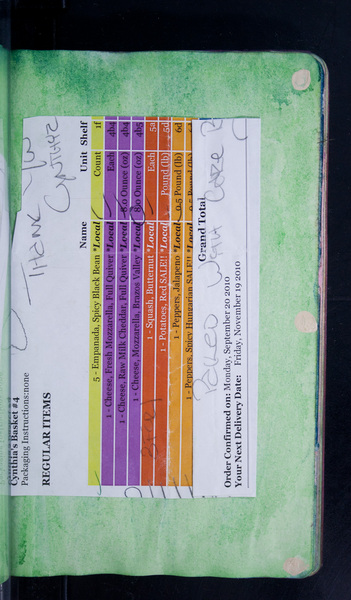 Thank you
Cynthyz
Cynthia's Basket #4
Packaging Instructions:none
REGULAR ITEMS
Name Unit Shelf
5 - Empanada, Spicy Black Bean *Local Count 1f
1 - Cheese, Fresh Mozzarella, Full Quiver *Local Each 4b4
1 - Cheese, Raw Milk Cheddar, Full Quiver *Local 8.0 Ounce (oz) 4b4
1 - Cheese, Mozzarella, Brazos Valley *Local 8.0 Ounce (oz) 4b5
1 - Squash, Butternut *Local Each 5a
1 - Potatoes, Red SALE!! *Local Pound (lb) 5d
1 - Peppers, Jalapeno *Local 0.5 Pound (lb) 6d
1 - Peppers, Spicy Hungarian SALE!! *Local 0.5 Pound (lb)
Grand Total
Packed with care
Order Confirmed on: Monday, September 20 2010
Your Next Delivery Date: Friday, November 19 2010